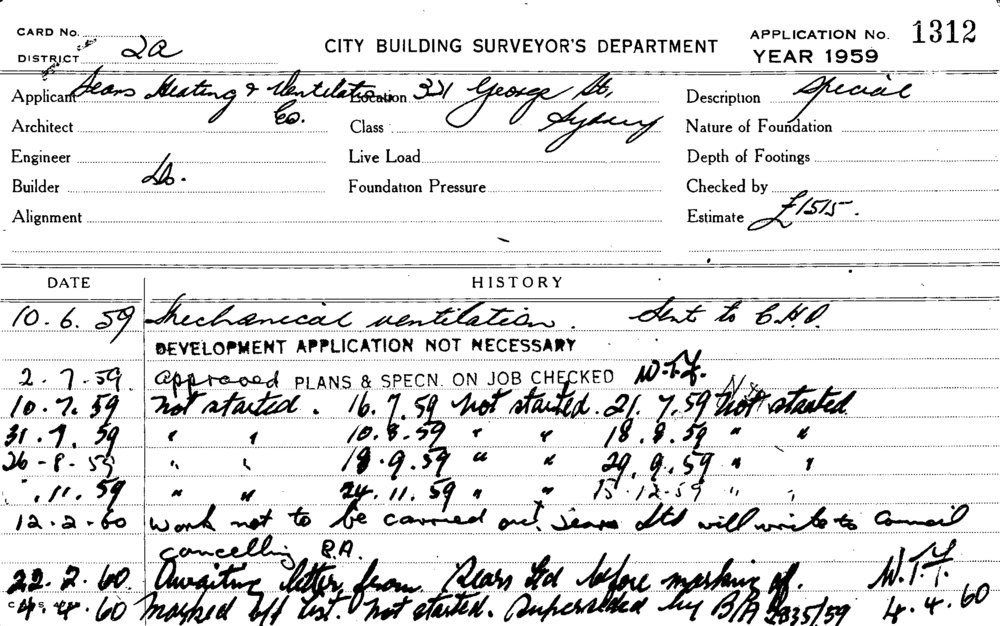 CARD No.
DISTRICT 2a
CITY BUILDING SURVEYOR'S DEPARTMENT
APPLICATION No. 1312
YEAR 1959
Applicant Sears Heating & Ventilation Co.
Location 321 George St, Sydney
Description Special
Architect
Class
Nature of Foundation
Engineer
Live Load
Depth of Footings
Builder Do.
Foundation Pressure
Checked by
Alignment
Estimate £1515.
DATE HISTORY
10.6.59 Mechanical ventilation. Sent to C.H.O.
DEVELOPMENT APPLICATION NOT NECESSARY
2.7.59. approved PLANS & SPECN. ON JOB CHECKED W.T.F.
10.7.59 not started. 16.7.59 not started. 21.7.59 Not started.
31.7.59 " " 10.8.59 " " 18.8.59 " "
26-8-59 " " 18.9.59 " " 29.9.59 " "
.11.59 " " 24.11.59 " " 15.12.59 " "
12.2.60 Work not to be carried out. Sears Ltd will write to Council
cancelling B.A.
22.2.60. Awaiting letter from Sears Ltd before marking off. W.T.F.
4.4.60 Marked off list. Not started. Superseded by B/A 2835/59 4.4.60